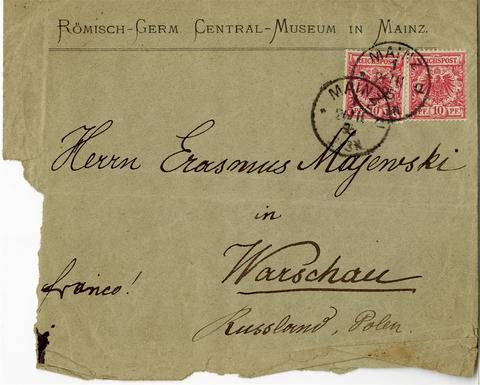 RÖMISCH-GERM. CENTRAL-MUSEUM IN MAINZ.
REICHSPOST REICHSPOST
10 PF. 10 PF.
MAINZ
MAINZ
Herrn Erasmus Majewski
in
Warschau
franco!
Russland, Polen.